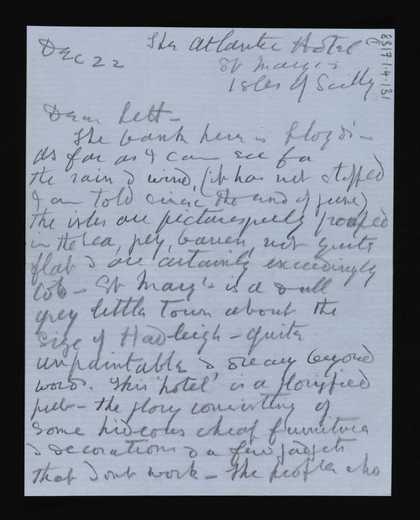 Dec 22
The Atlantic Hotel
St Mary's
Isles of Scilly
8317.1.4.131
Dear Lett –
The bank here is Lloyds –
As far as I can see for
the rain & wind, (it has not stopped
I am told since the end of June)
the isles are picturesquely grouped
in the sea, grey, barren, not quite
flat & are certainly exceedingly
wet – St Mary's is a dull
grey little town about the
size of Hadleigh – quite
unpaintable & dreary beyond
words. This 'hotel' is a glorified
pub – the glory consisting of
some hideous cheap furniture
& decorations & a few gadgets
that dont work – The people who